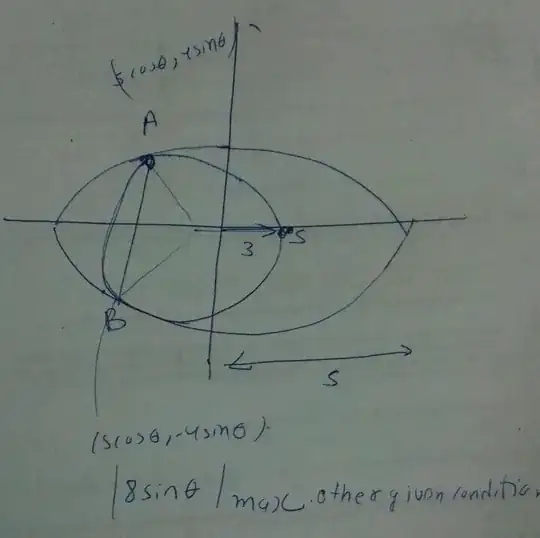 (5cosθ, 4sinθ)
A
S
3
B
5
(5cosθ, -4sinθ).
|8sinθ|max. other given condition